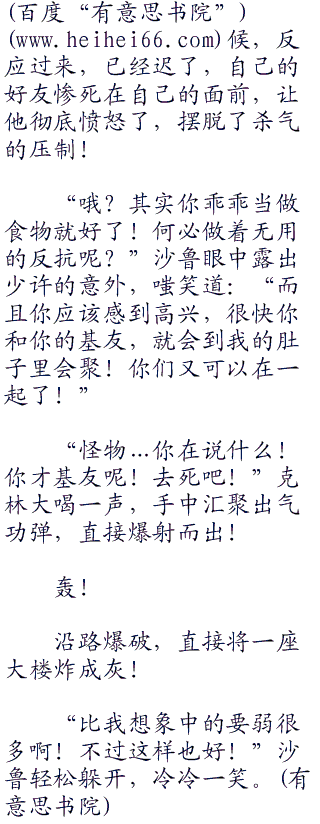 (百度“有意思书院”)
(www.heihei66.com)候，反
应过来，已经迟了，自己的
好友惨死在自己的面前，让
他彻底愤怒了，摆脱了杀气
的压制！
“哦？其实你乖乖当做
食物就好了！何必做着无用
的反抗呢？”沙鲁眼中露出
少许的意外，嗤笑道：“而
且你应该感到高兴，很快你
和你的基友，就会到我的肚
子里会聚！你们又可以在一
起了！”
“怪物…你在说什么！
你才基友呢！去死吧！”克
林大喝一声，手中汇聚出气
功弹，直接爆射而出！
轰！
沿路爆破，直接将一座
大楼炸成灰！
“比我想象中的要弱很
多啊！不过这样也好！”沙
鲁轻松躲开，冷冷一笑。(有
意思书院)